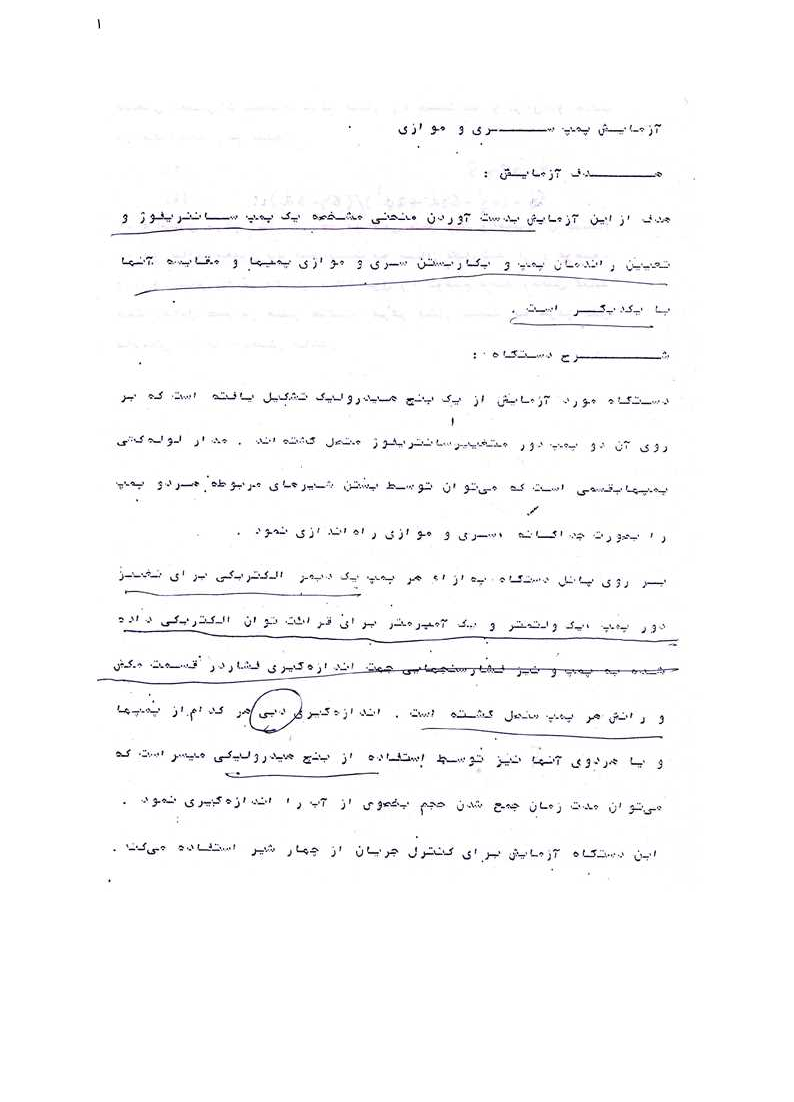 ۱
آزمایش پمپ سری و موازی .
هدف آزمایش :
هدف از این آزمایش بدست آوردن منحنی مشخصه یک پمپ سانتریفوژ و
تعیین راندمان پمپ و بکاربستن سری و موازی پمپها و مقایسه آنها
با یکدیگر است .
شرح دستگاه :
دستگاه مورد آزمایش از یک بنچ هیدرولیک تشکیل یافته است که بر
روی آن دو پمپ دور متغییر سانتریفوژ متصل گشته اند . مدار لوله‌کشی
پمپها بقسمی است که می‌توان توسط بستن شیرهای مربوطه هر دو پمپ
را بصورت جداگانه ، سری و موازی راه اندازی نمود .
بر روی پانل دستگاه به ازاء هر پمپ یک دیمر الکتریکی برای تغییر
دور پمپ ، یک ولتمتر و یک آمپرمتر برای قرائت توان الکتریکی داده
شده به پمپ و نیز فشارسنجهایی جهت اندازه‌گیری فشار در قسمت مکش
و رانش هر پمپ متصل گشته است . اندازه‌گیری دبی هر کدام از پمپها
و یا هردوی آنها نیز توسط استفاده از بنچ هیدرولیکی میسر است که
می‌توان مدت زمان جمع شدن حجم بخصوی از آب را اندازه‌گیری نمود .
این دستگاه آزمایش برای کنترل جریان از چهار شیر استفاده می‌کند .